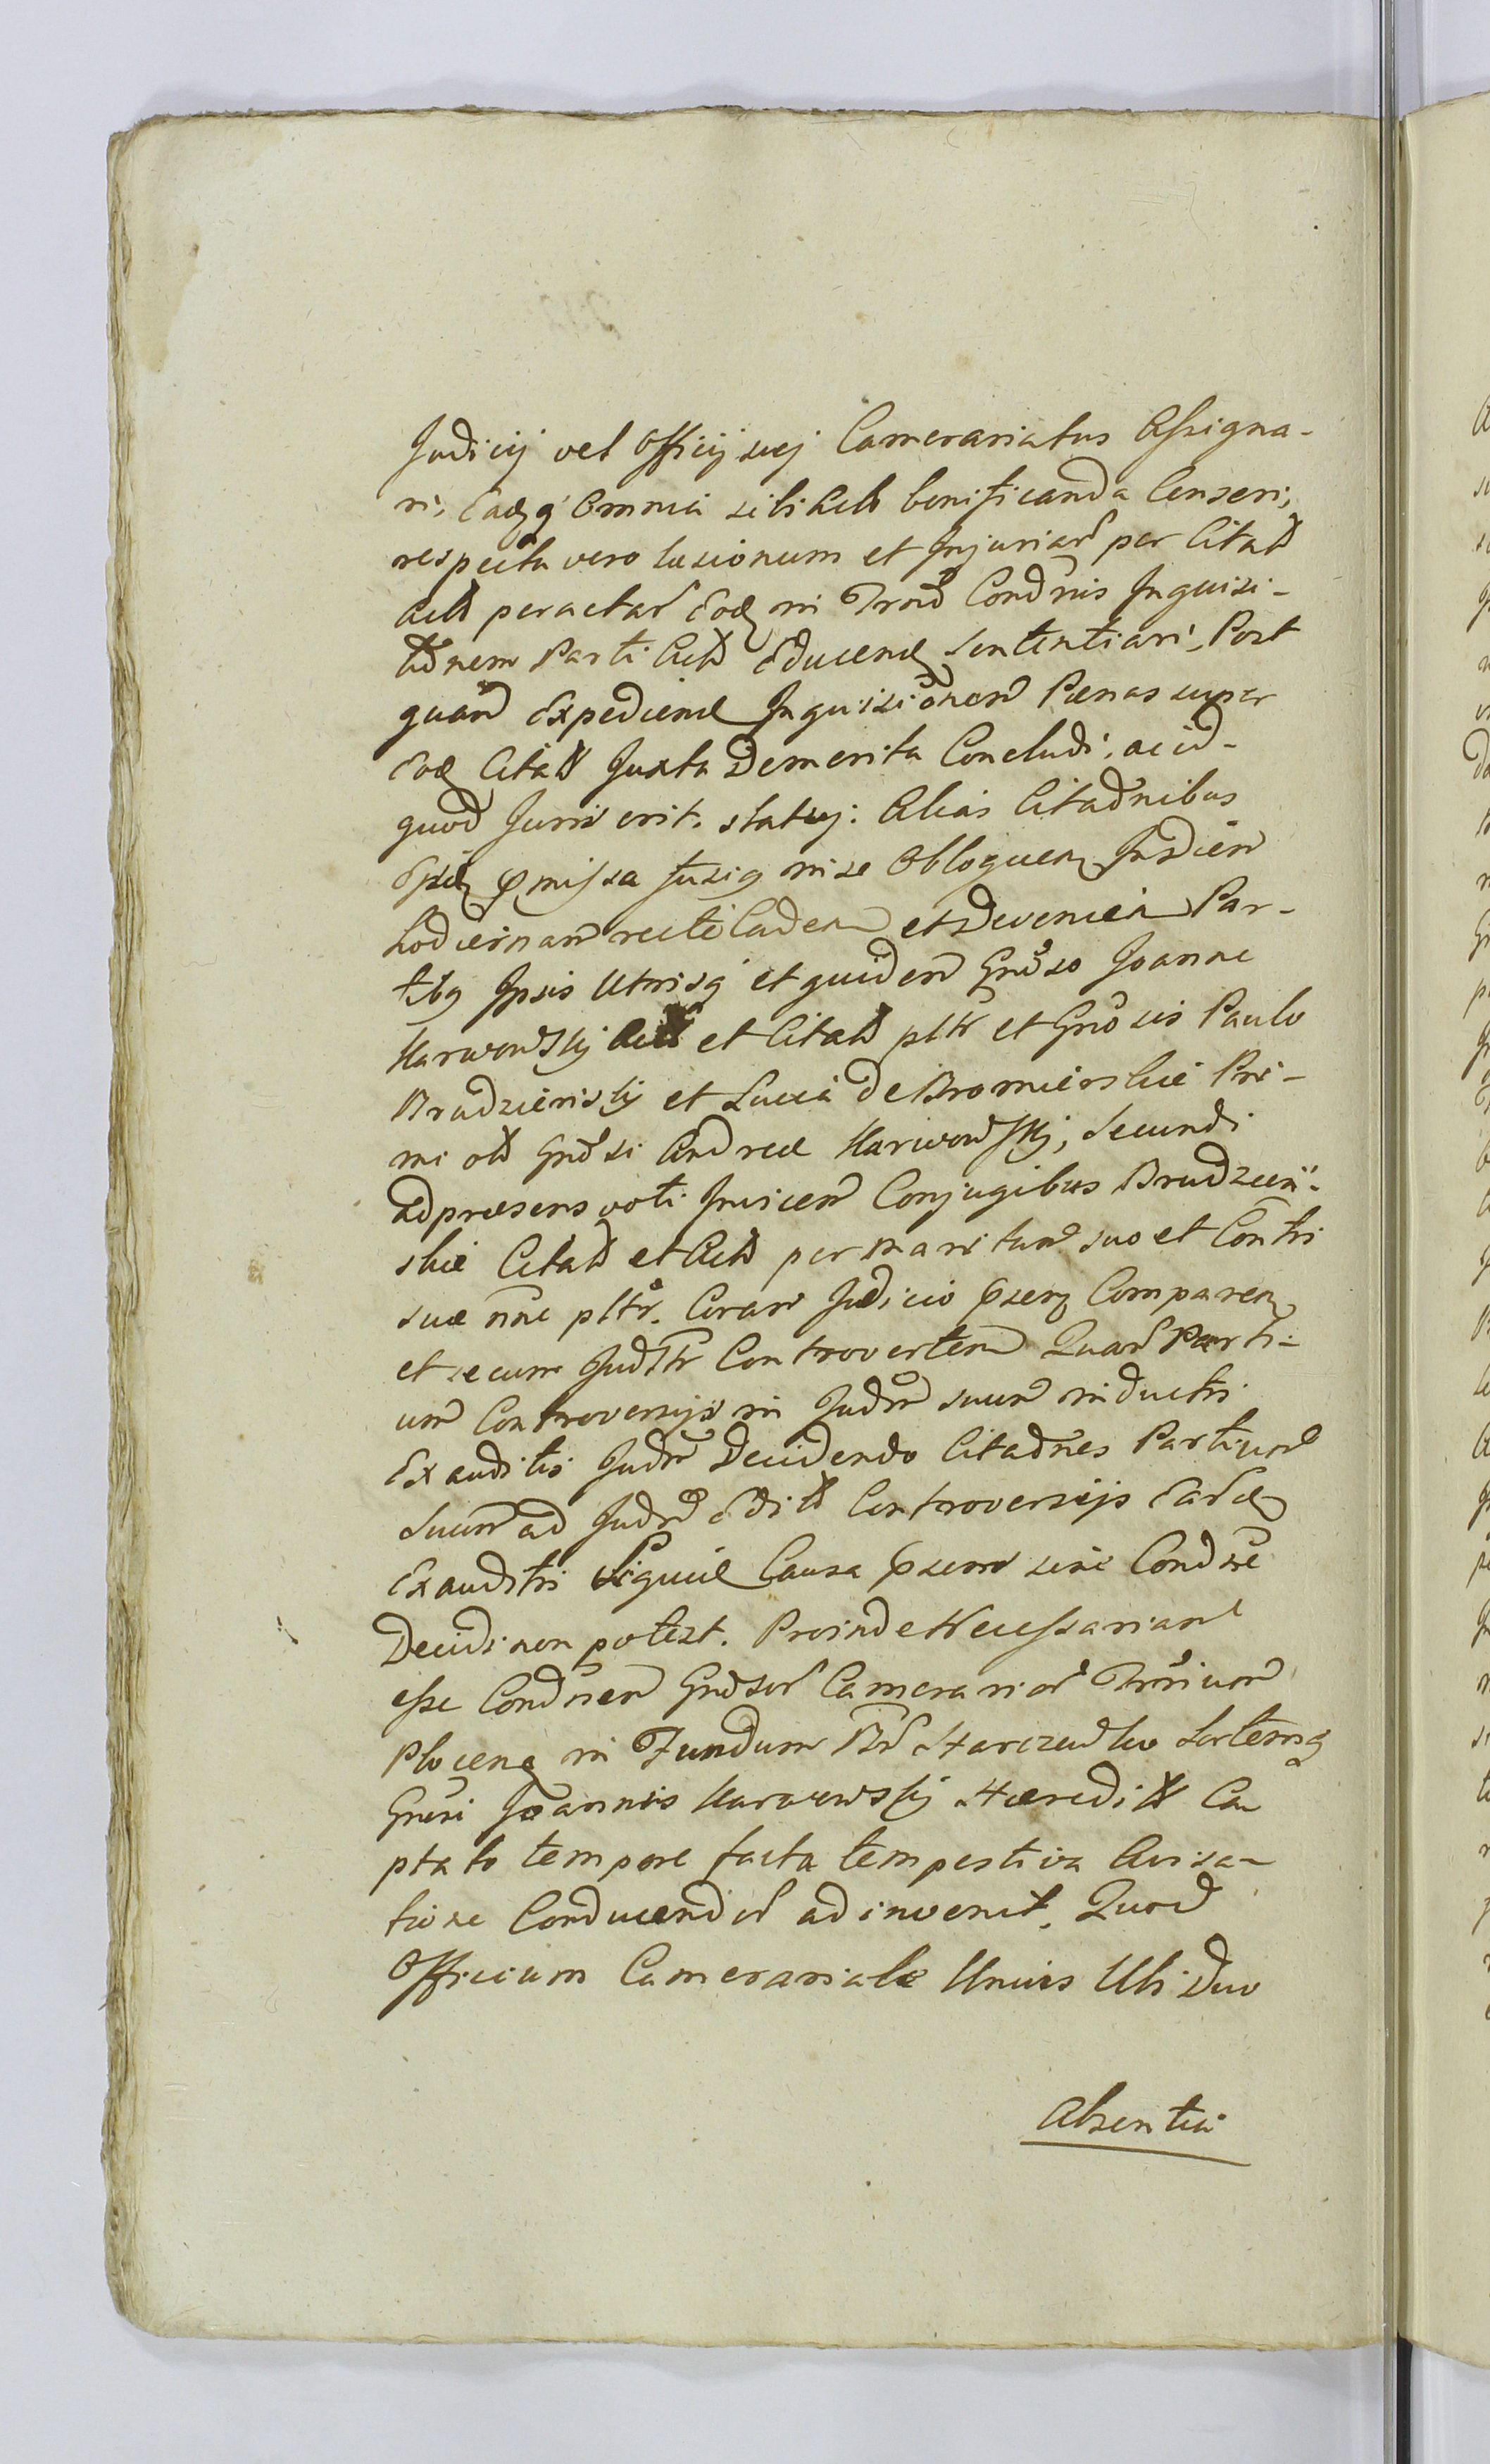 Judicij vel Officij suj Camerariatus Assigna-
ri, Eaqq Omnia sibi Actt bonificanda Censeri,
respectu vero læsionum et Injuriar per Citatt
Actt peractar Eoq in Trno Condnis Inquisi-
tionem Parti Actt Educend Sententiari, Post
quam Expediend Inquisitionem Pænas super
Eoq Citatt Juxta Demerita Concludi, ac id-
quod Juris erit, statuj: Alias Citaonibus
præmissa fusiq in se Obloquen In diem
hodiernam recte Caden et Devenien Par-
tibq Ipsis Utrisq et quidem Gnoso Joanne
Karwowskij Actt et Citatt pltr et Gnosis Paulo
Brudzienskij et Lucia de Bromierskie Pri-
mi ott Gnosi Andreæ Karwowskij, Secundi
ad præsens voti Invicem Conjugibus Brudzeń-
skie Citatt et Actt per maritum suo et Conthi
suæ nne pltr. Coram Judicio præsen Comparen
et secum Judltr Controverten Quar Parti-
um Controversijs in Judm suum inductis
Exauditis Judm Decidendo Citaones Partium
Suum ad Judm Editt Controversijs Earq
Exauditis Siquid Causa præsens sine Condne
Decidi non potest. Proinde Necessariam
esse Condnem Gnosor Camerarior Trrium
Plocens in Fundum Bn Starczewko Sortemq
Gnosi Joannis Karwowskij Hæreditt Ca
ptato tempore facta tempestiva Avisa-
tione Conducendor adinvenit, Quod
Officium Camerariale Unius Ubi Duo
Absentia